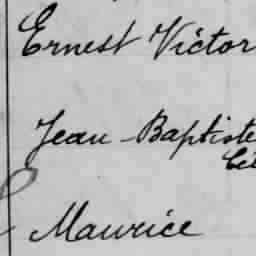 Ernest Victor
Jean-Baptiste
Maurice